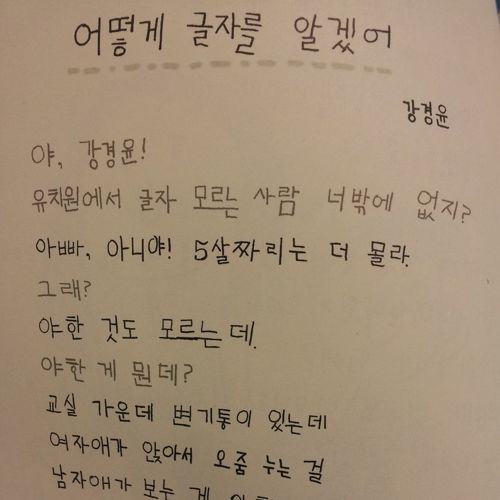 어떻게 글자를 알겠어
강경윤
야, 강경윤!
유치원에서 글자 모르는 사람 너밖에 없지?
아빠, 아니야! 5살짜리는 더 몰라.
그래?
야한 것도 모르는데.
야한 게 뭔데?
교실 가운데 변기통이 있는데
여자애가 앉아서 오줌 누는 걸
남자애가 보는 게